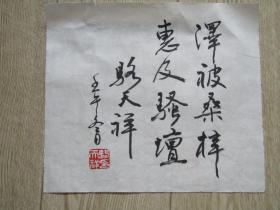 澤被桑梓
惠及騷壇
駱天祥
壬午冬月